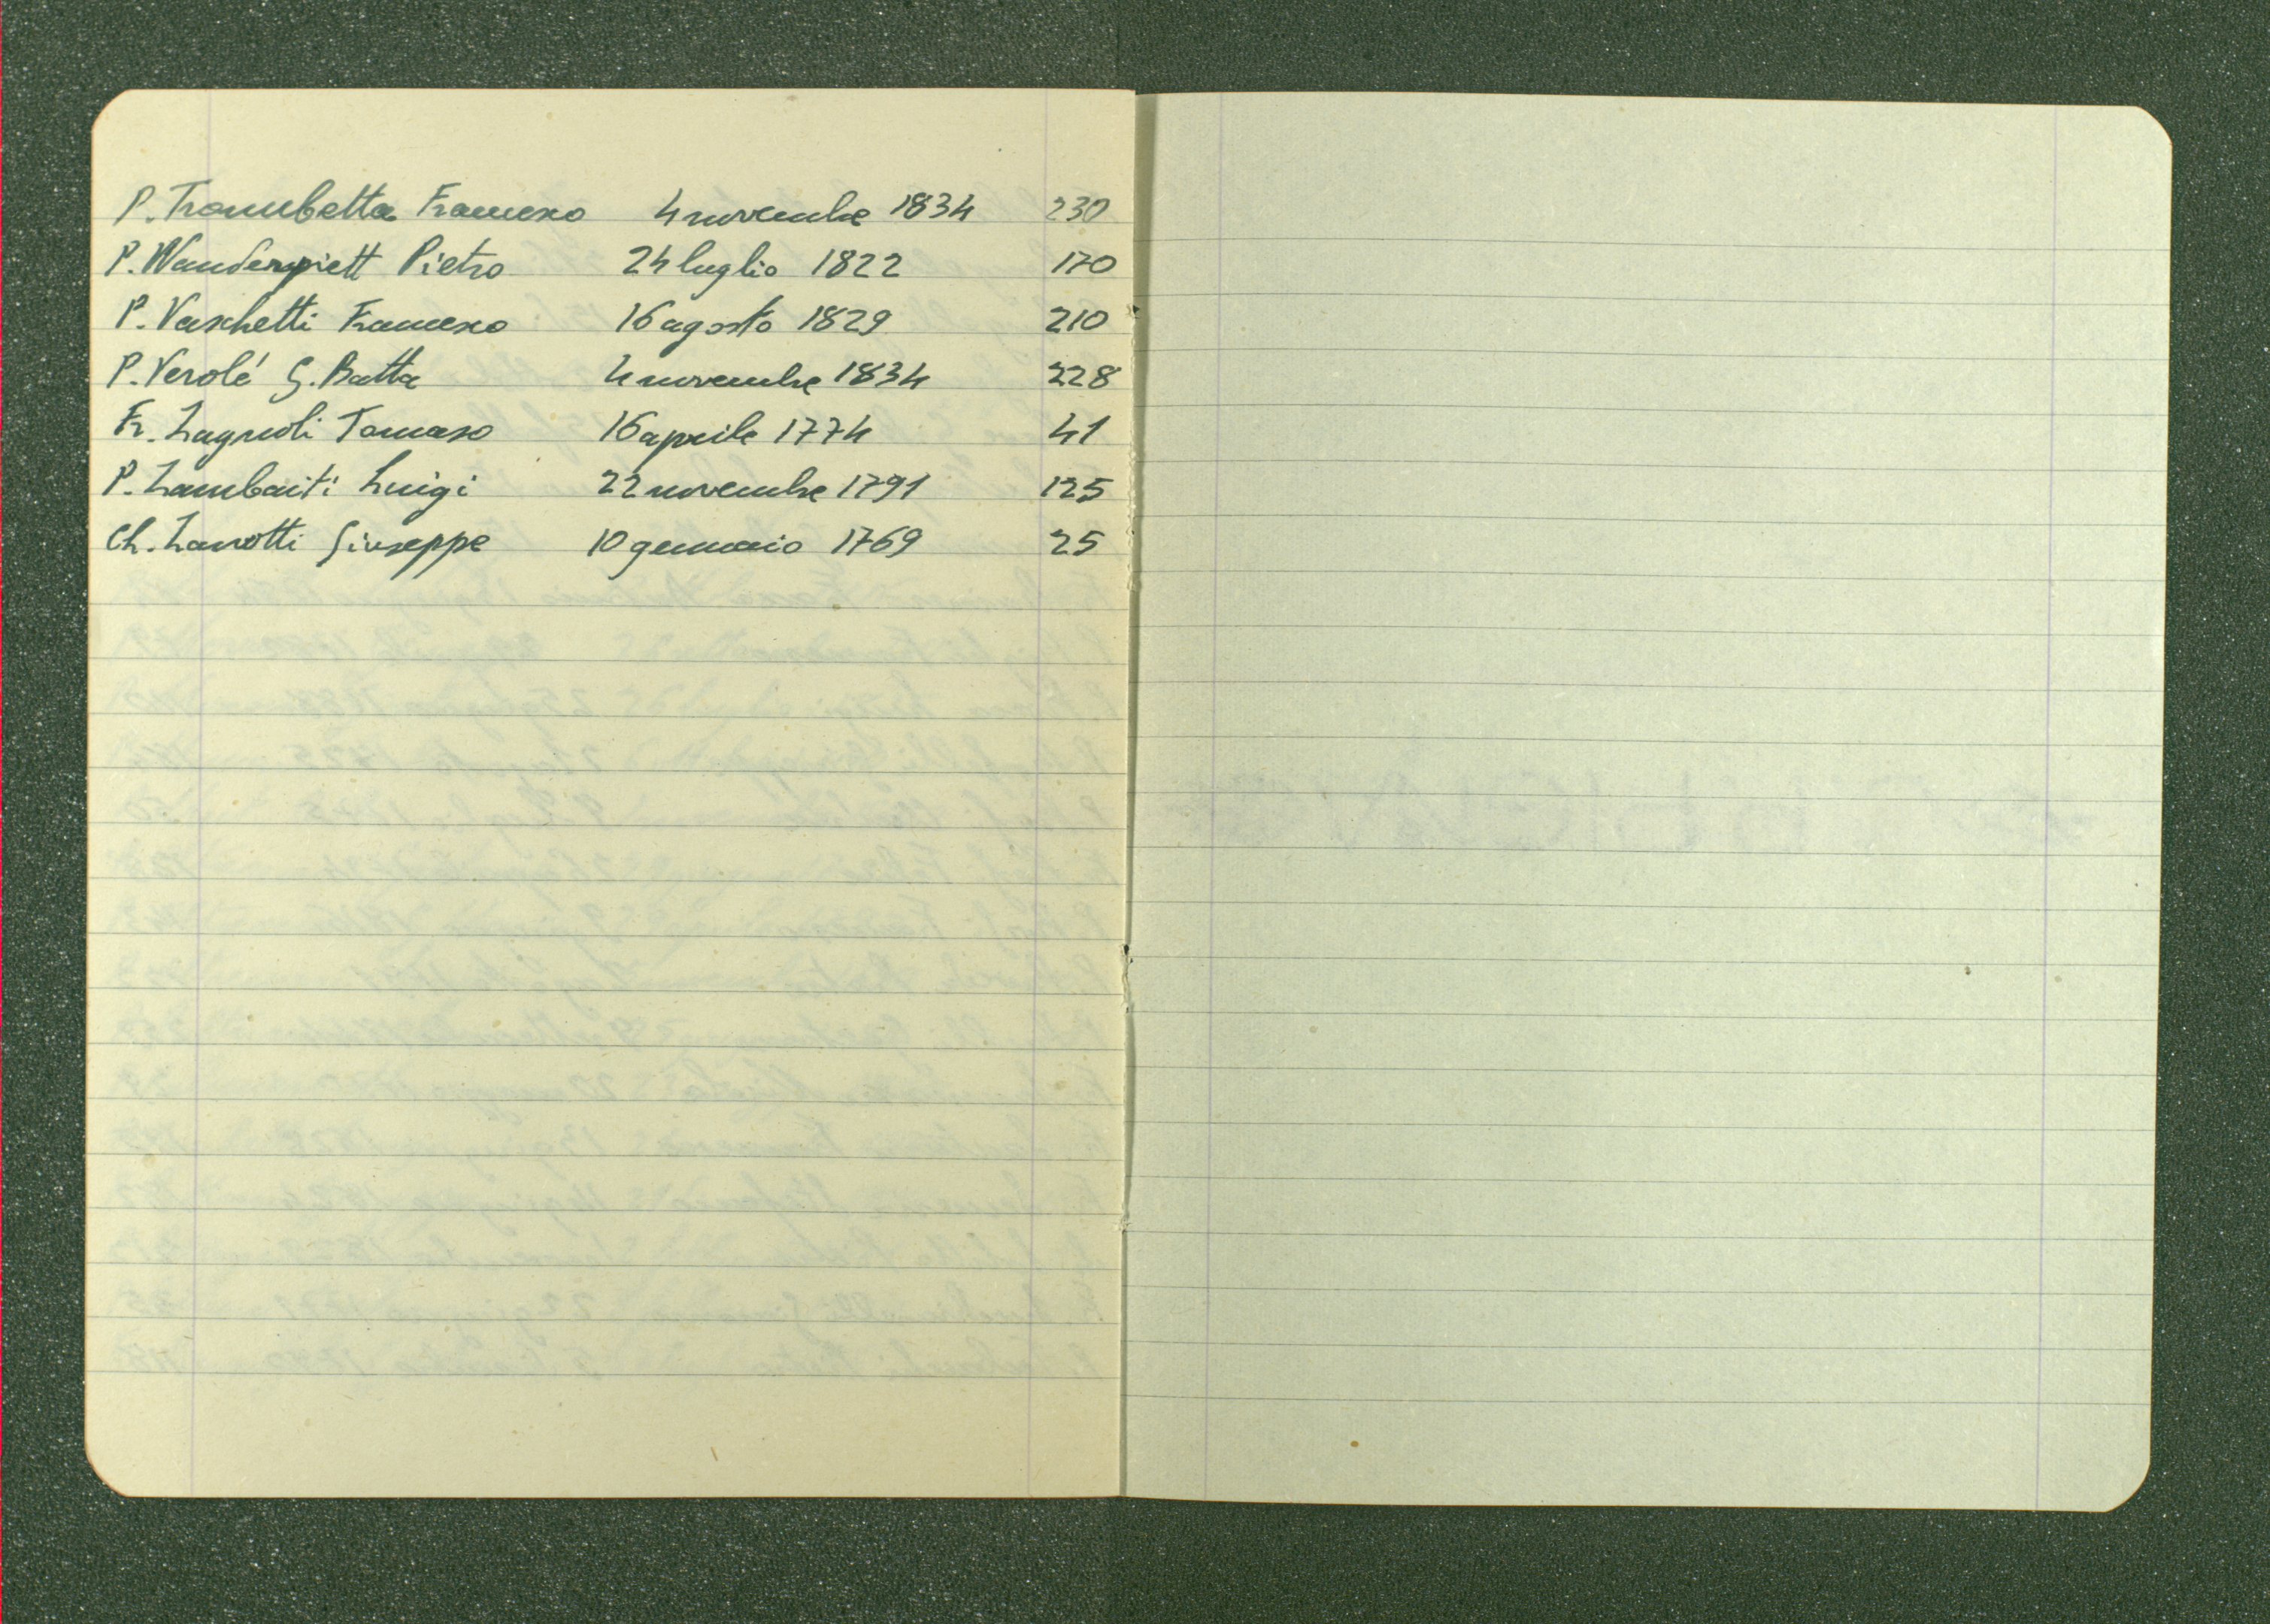 P. Trombetta Francesco 4 novembre 1834 230
P. Wanderpiett Pietro 24 luglio 1822 170
P. Vaschetti Francesco 16 agosto 1829 210
P. Verolé G. Batta 4 novembre 1834 228
Fr. Zagnoli Tomaso 16 aprile 1774 41
P. Zambaiti Luigi 22 novembre 1791 125
Ch. Zanotti Giuseppe 10 gennaio 1769 25